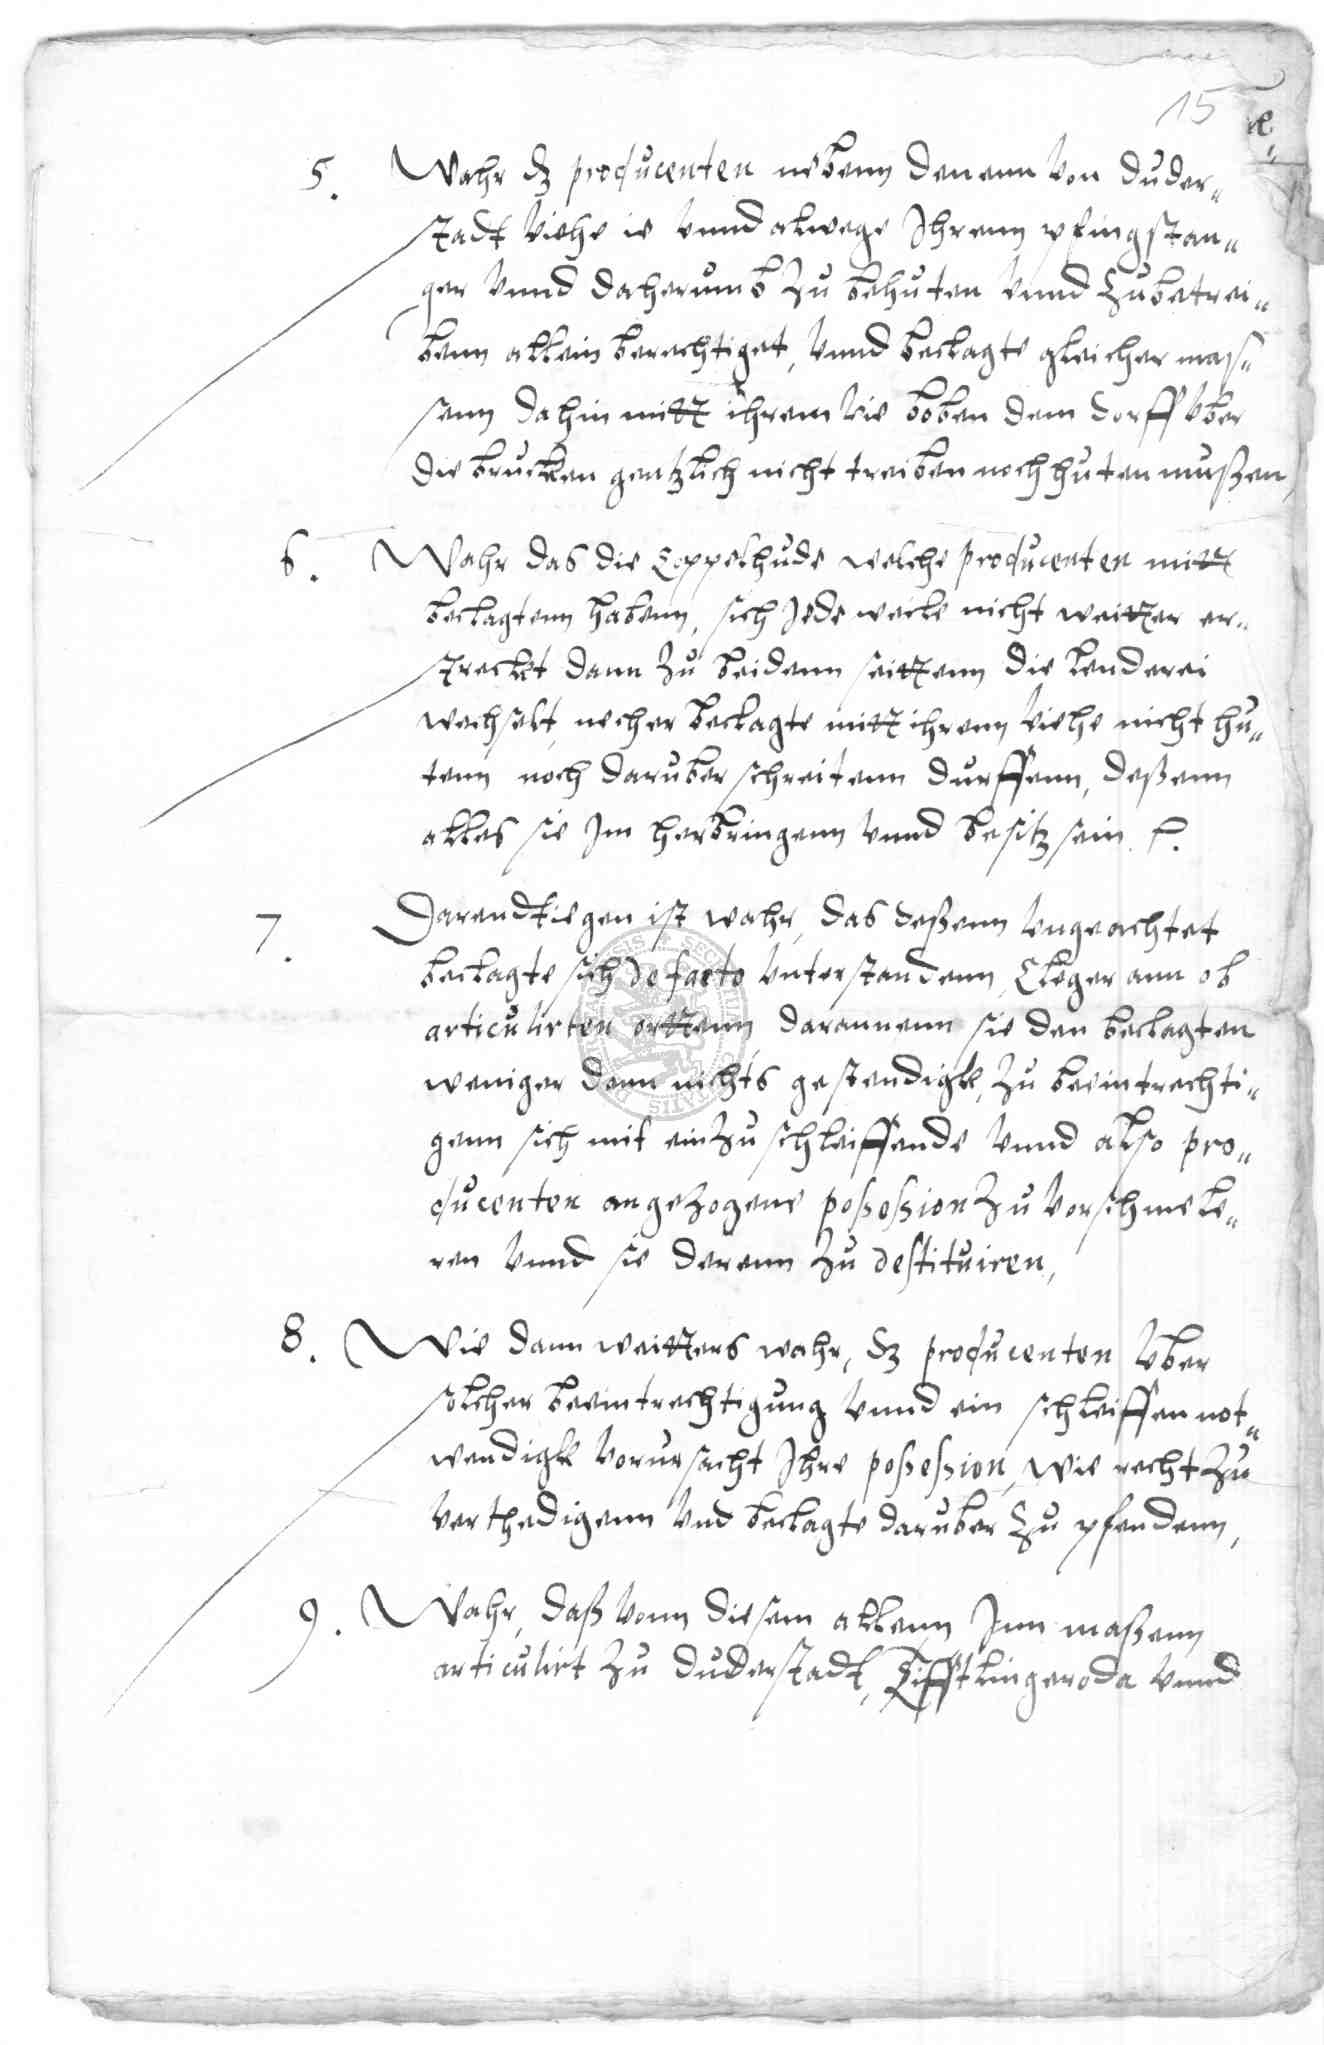 15
5. Wahr dz producenten nebenn denenn von duder„
stadt viehe ie vnnd alwege Ihrenn pfingstan„
ger vnnd daherumb zu behuten vnnd zubetrei„
benn allein berechtiget, vnnd beclagte gleicher mas„
senn dahin mitt ihrem vie boben dem dorff vber
die brucken gentzlich nicht treiben noch huten mußen,
6. Wahr das die Coppelhude welche producenten mitt
beclagtenn habenn, sich Jede weile nicht weitter er„
streckt dann zu beidenn seittenn die lenderei
wechselt, necher beclagte mitt ihrenn viehe nicht hu„
tenn noch daruber schreitenn durffenn, deßenn
alles sie Jm herbringenn vnnd besitz sein.
7. Darendkiegen ist wahr, das deßenn vngeachtet
beclagte sich de facto vnterstandenn, Cleger ann ob
articulirten orttenn darannenn sie den beclagten
weniger dann nichts gestendigk, zu beeintrechti„
genn sich mit einzuschleiffende vnnd also pro„
ducenten angezogene poßeßion zu vorschmele„
ren vnnd sie derenn zu destituiren,
8. Wie dann weitters wahr, dz producenten vber
solcher beeintrechtigung vnnd ein schleiffen not„
wendigk vorursacht Ihre poßeßion, wie recht zu
verthedigenn vnd beclagte daruber zu pfendenn,
9. Wahr, daß vonn diesem allenn Jnn maßenn
articulirt zu duderstadt, Tifftlingeroda vnnd